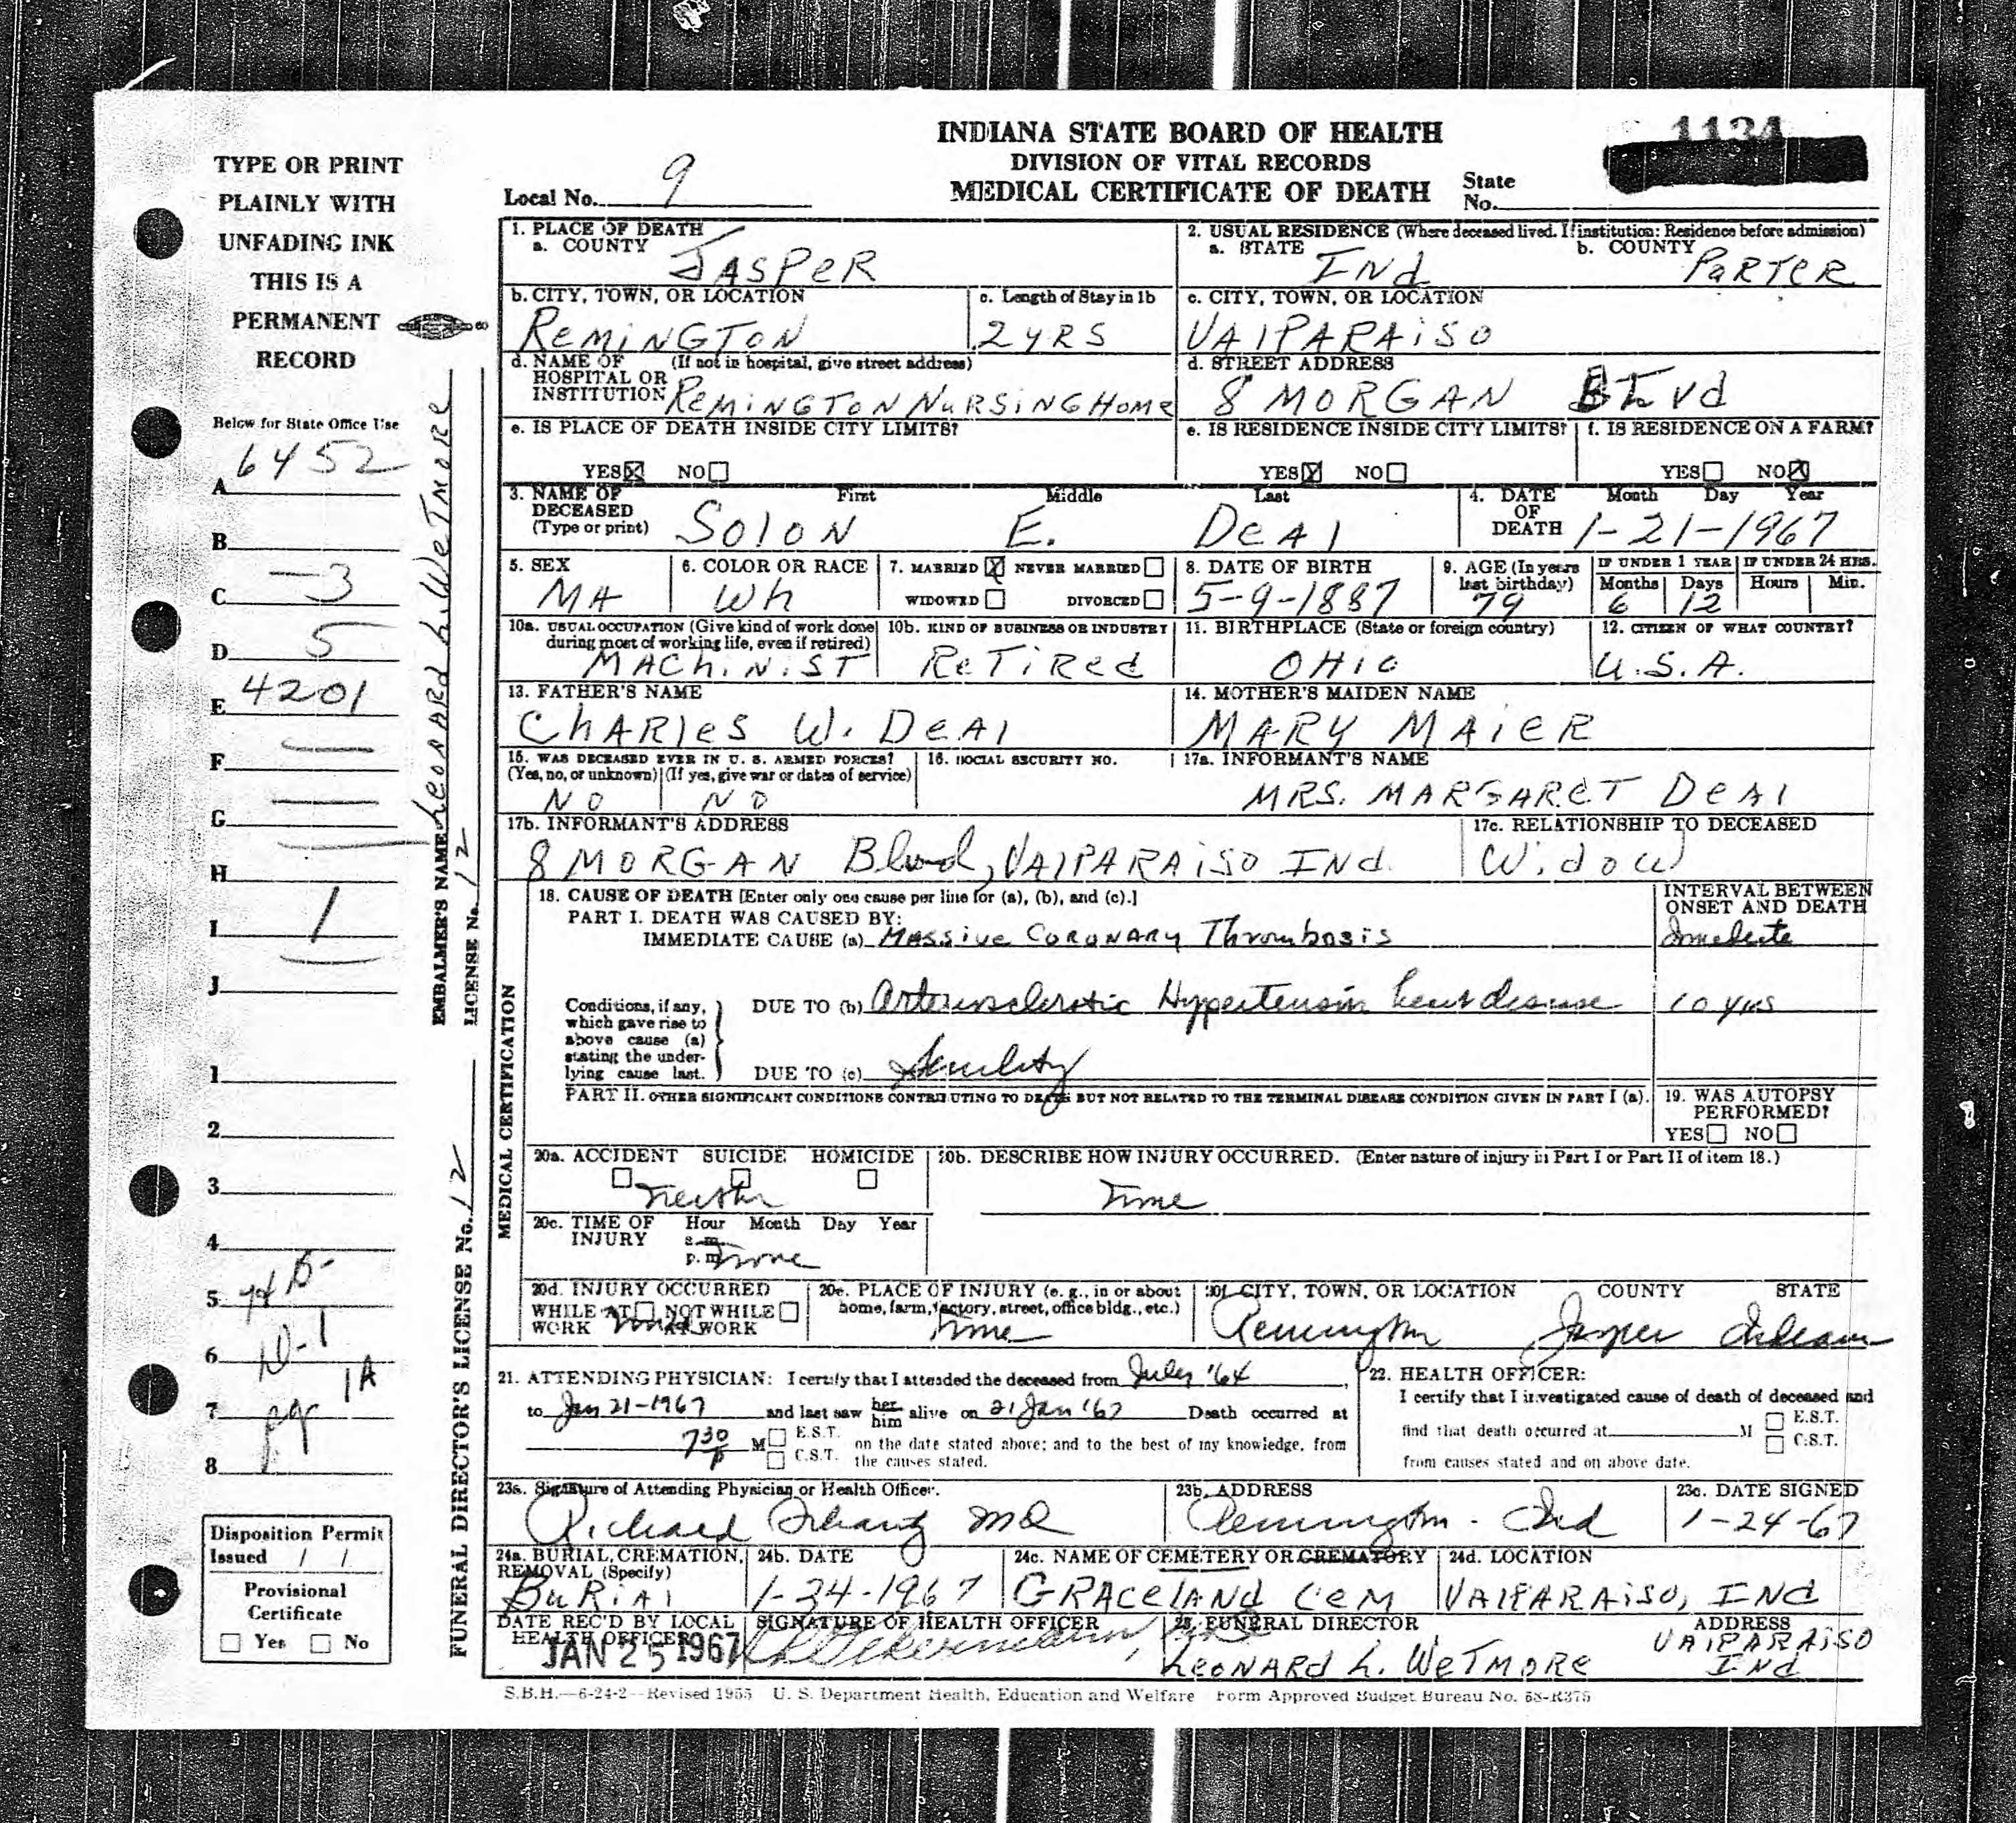 1134
INDIANA STATE BOARD OF HEALTH
DIVISION OF VITAL RECORDS
MEDICAL CERTIFICATE OF DEATH
Local No. 9
State No.
TYPE OR PRINT
PLAINLY WITH
UNFADING INK
THIS IS A
PERMANENT
RECORD
Below for State Office Use
A 6452
B
C —3
D 5
E 4201
F —
G —
H
I 1
J
1
2
3
4
5
6
7
8
Disposition Permit
Issued / /
Provisional
Certificate
☐ Yes ☐ No
EMBALMER'S NAME LeONARD L. WeTMORe
LICENSE No. 12
FUNERAL DIRECTOR'S LICENSE No. 12
1. PLACE OF DEATH
a. COUNTY JASPeR
2. USUAL RESIDENCE (Where deceased lived. If institution: Residence before admission)
a. STATE INd b. COUNTY PoRTeR
b. CITY, TOWN, OR LOCATION ReMiNGTON
c. Length of Stay in 1b 2 yRS
c. CITY, TOWN, OR LOCATION VAlPARAiSO
d. NAME OF HOSPITAL OR INSTITUTION (If not in hospital, give street address) ReMiNGTON NuRSiNG HOMe
d. STREET ADDRESS 8 MORGAN Blvd
e. IS PLACE OF DEATH INSIDE CITY LIMITS?
YES ☒ NO ☐
e. IS RESIDENCE INSIDE CITY LIMITS?
YES ☒ NO ☐
f. IS RESIDENCE ON A FARM?
YES ☐ NO ☒
3. NAME OF DECEASED (Type or print) First Middle Last
SOlON E. DeAl
4. DATE OF DEATH Month Day Year
1-21-1967
5. SEX MA
6. COLOR OR RACE Wh
7. MARRIED ☒ NEVER MARRIED ☐
WIDOWED ☐ DIVORCED ☐
8. DATE OF BIRTH 5-9-1887
9. AGE (In years last birthday) 79
IF UNDER 1 YEAR Months 6 Days 12
IF UNDER 24 HRS. Hours Min.
10a. USUAL OCCUPATION (Give kind of work done during most of working life, even if retired) MAChiNiST
10b. KIND OF BUSINESS OR INDUSTRY ReTiRed
11. BIRTHPLACE (State or foreign country) OHiO
12. CITIZEN OF WHAT COUNTRY? U.S.A.
13. FATHER'S NAME ChARleS W. DeAl
14. MOTHER'S MAIDEN NAME MARY MAiER
15. WAS DECEASED EVER IN U. S. ARMED FORCES?
(Yes, no, or unknown) NO (If yes, give war or dates of service) NO
16. SOCIAL SECURITY NO.
17a. INFORMANT'S NAME MRS. MARGAReT DeAl
17b. INFORMANT'S ADDRESS 8 MORGAN Blvd, VAlPARAiSO INd.
17c. RELATIONSHIP TO DECEASED WidOW
MEDICAL CERTIFICATION
18. CAUSE OF DEATH [Enter only one cause per line for (a), (b), and (c).]
INTERVAL BETWEEN ONSET AND DEATH
PART I. DEATH WAS CAUSED BY:
IMMEDIATE CAUSE (a) Massive Coronary Thrombosis
Conditions, if any, which gave rise to above cause (a) stating the underlying cause last.
DUE TO (b) Arteriosclerotic Hypertension heart disease 10 yrs
DUE TO (c) Senility
PART II. OTHER SIGNIFICANT CONDITIONS CONTRIBUTING TO DEATH BUT NOT RELATED TO THE TERMINAL DISEASE CONDITION GIVEN IN PART I (a).
19. WAS AUTOPSY PERFORMED?
YES ☐ NO ☐
20a. ACCIDENT SUICIDE HOMICIDE
☐ ☐ ☐
20b. DESCRIBE HOW INJURY OCCURRED. (Enter nature of injury in Part I or Part II of item 18.)
none
20c. TIME OF INJURY Hour Month Day Year
a.m.
p.m. none
20d. INJURY OCCURRED
WHILE AT WORK ☐ NOT WHILE AT WORK ☐
20e. PLACE OF INJURY (e. g., in or about home, farm, factory, street, office bldg., etc.) none
20f. CITY, TOWN, OR LOCATION COUNTY STATE
Remington Jasper Indiana
21. ATTENDING PHYSICIAN: I certify that I attended the deceased from July '64
to Jan 21-1967 and last saw her him alive on 21 Jan '67 Death occurred at
730 P M ☐ E.S.T. ☐ C.S.T. on the date stated above; and to the best of my knowledge, from the causes stated.
22. HEALTH OFFICER:
I certify that I investigated cause of death of deceased and
find that death occurred at M ☐ E.S.T. ☐ C.S.T.
from causes stated and on above date.
23a. Signature of Attending Physician or Health Officer.
Richard MD
23b. ADDRESS Remington - Ind
23c. DATE SIGNED 1-24-67
24a. BURIAL, CREMATION, REMOVAL (Specify) BuRiAl
24b. DATE 1-24-1967
24c. NAME OF CEMETERY OR CREMATORY GRACelAND CeM
24d. LOCATION VAlPARAiSO, INd
DATE REC'D BY LOCAL HEALTH OFFICER JAN 25 1967
SIGNATURE OF HEALTH OFFICER
25. FUNERAL DIRECTOR LeONARD L. WeTMORe
ADDRESS VAlPARAiSO INd
S.B.H.—6-24-2—Revised 1955 U. S. Department Health, Education and Welfare Form Approved Budget Bureau No. 68-R375